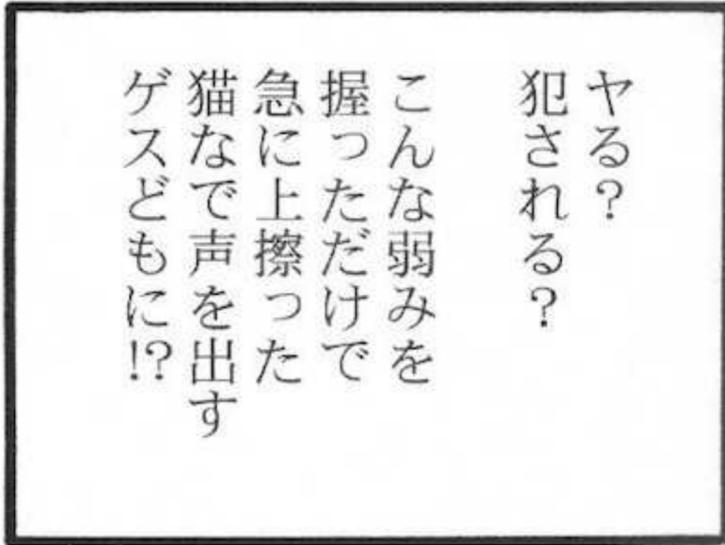 ヤる？
犯される？
こんな弱みを
握っただけで
急に上擦った
猫なで声を出す
ゲスどもに!?